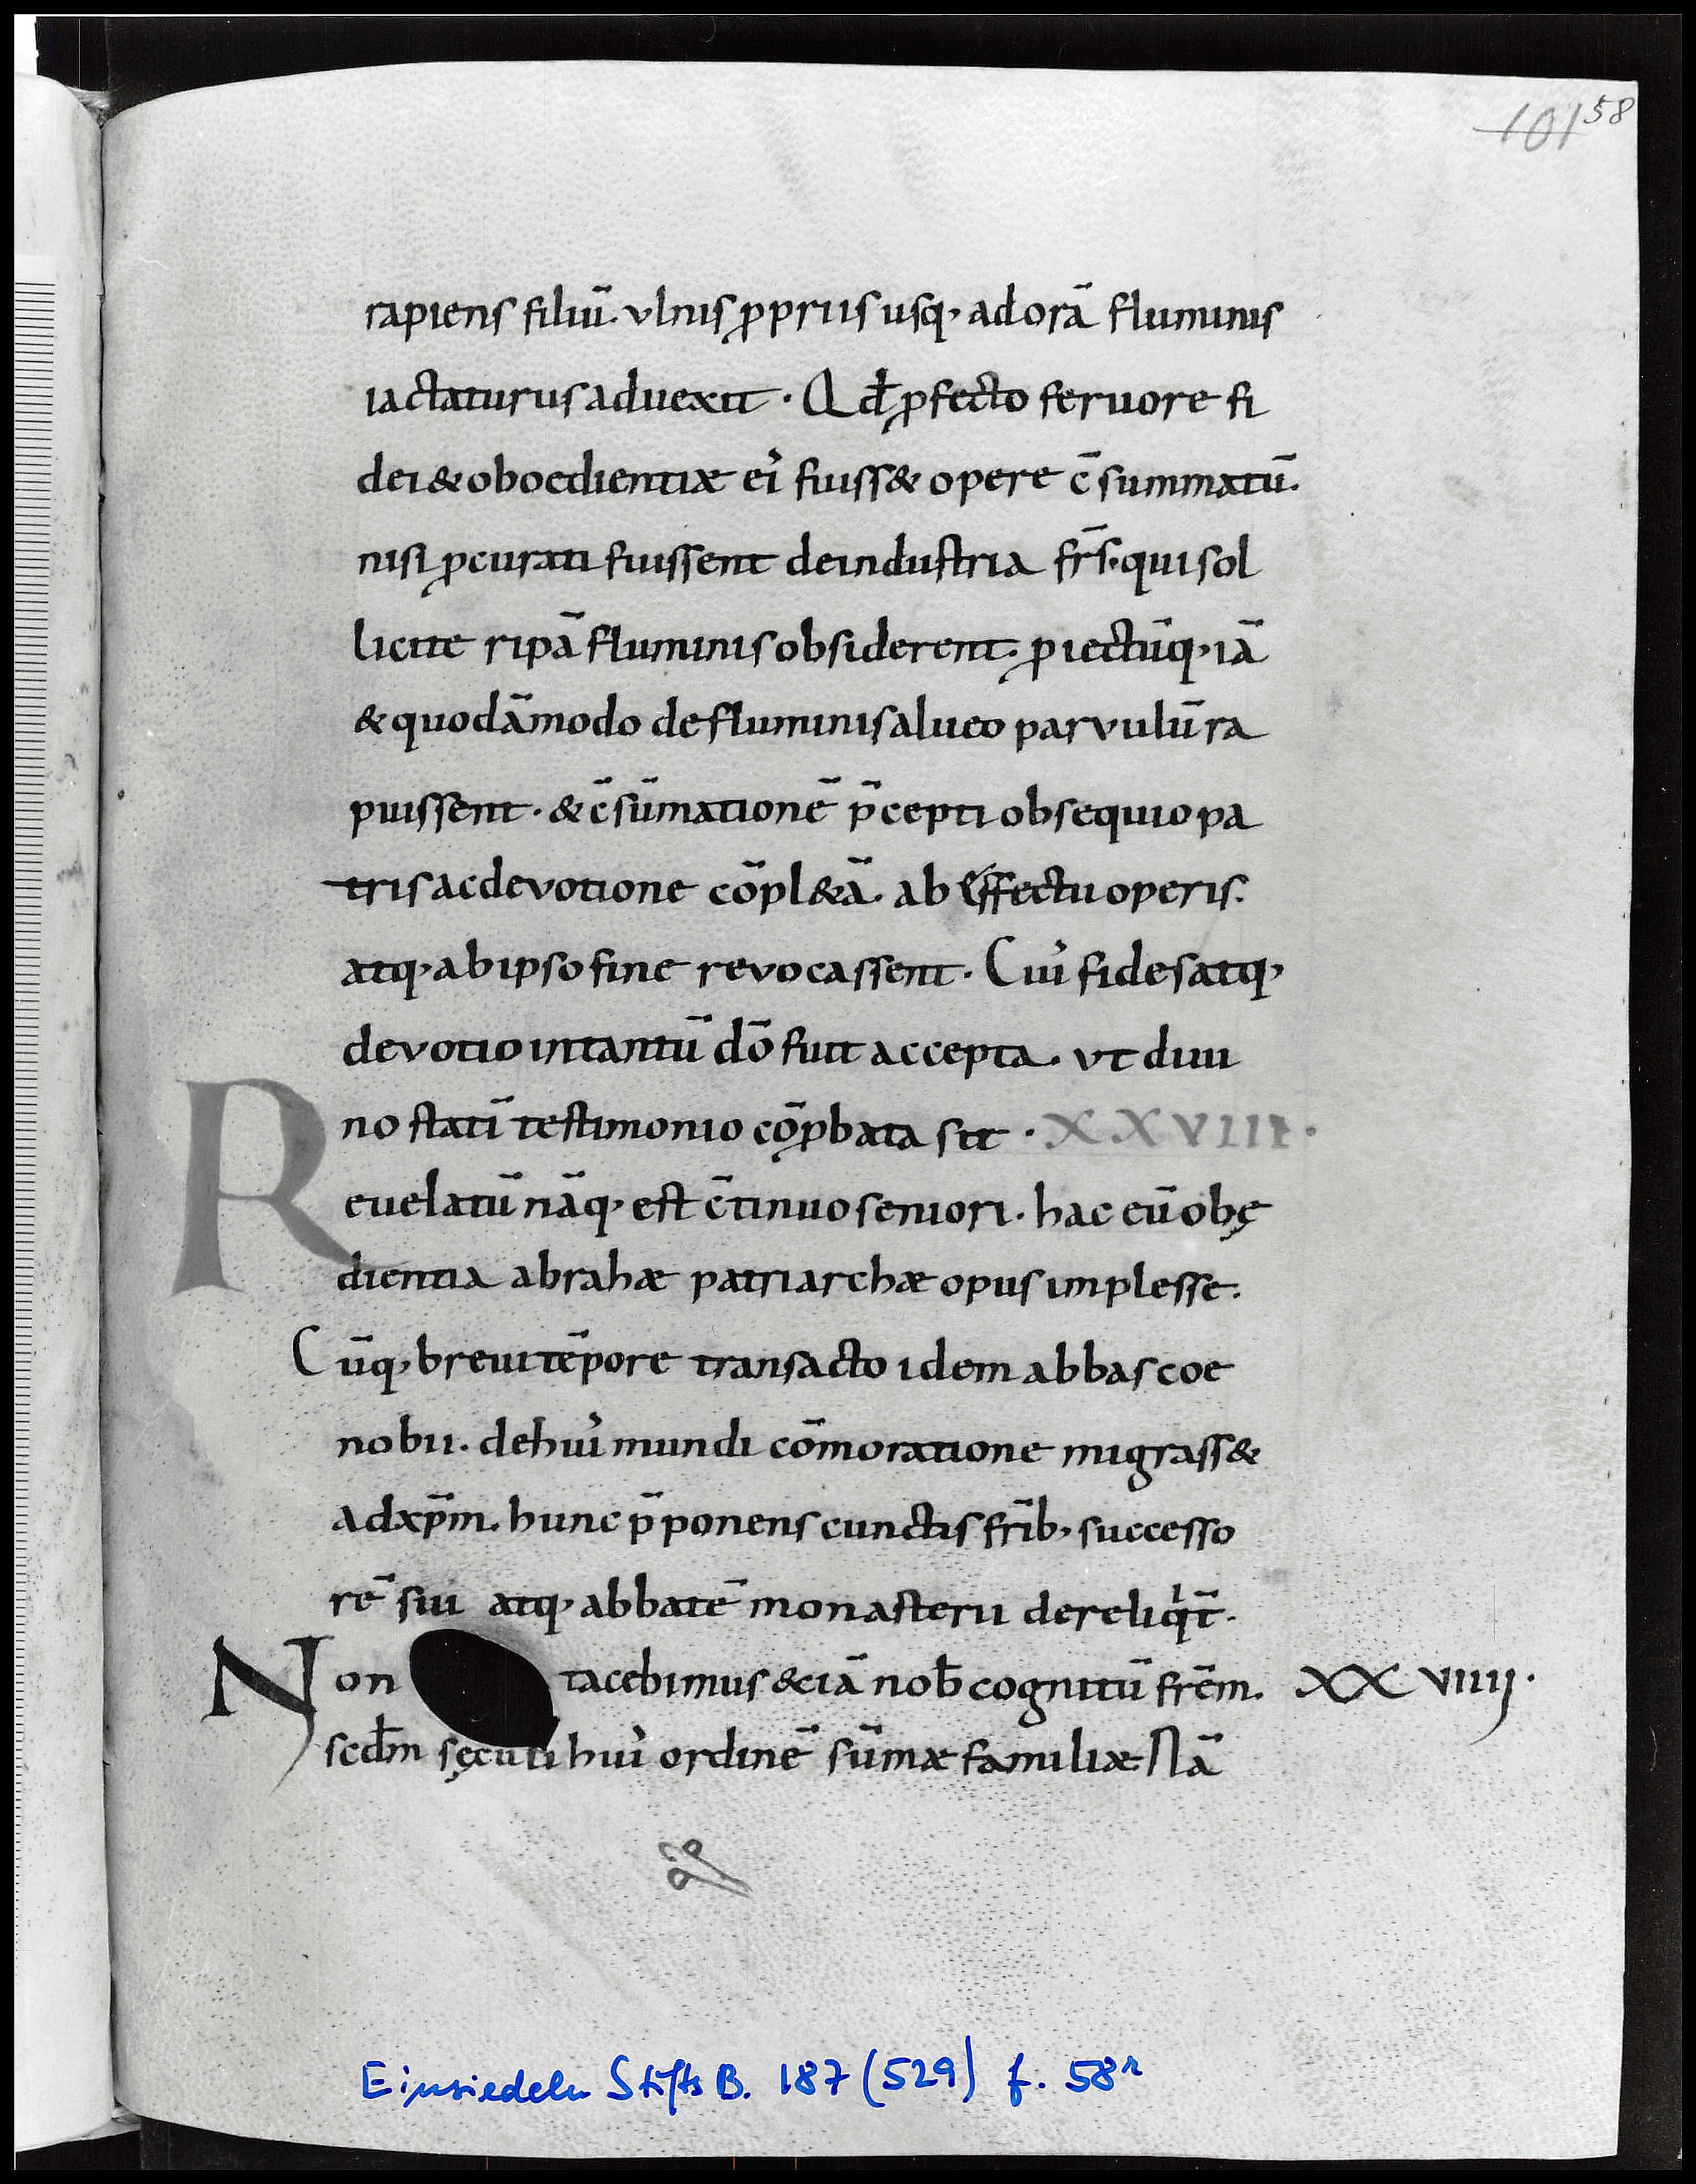 101 58
rapiens filiū. vlnis ꝓpriis usq; ad orā fluminis
iactaturus aduexit. Qđ ꝓfecto feruore fi
dei & oboedientiæ ei' fuiss& opere c̄summatū.
nisi ꝓcurati fuissent de industria fr̄s. qui sol
licite ripā fluminis obsiderent. ꝓiectūq; iā
& quodāmodo de fluminis alueo parvulū ra
puissent. & c̄sūmationē p̄cepti obsequio pa
tris ac devotione cōpl&ā. ab effectu operis.
atq; ab ipso fine revocassent. Cui' fides atq;
devotio in tantū dō fuit accepta. vt diui
no statī testimonio cōꝓbata sit. XXVIII.
Reuelatū nāq; est c̄tinuo seniori. hac eū obę
dientia abrahæ patriarchæ opus implesse.
Cūq; breui tēpore transacto idem abbas coe
nobii. de hui' mundi cōmoratione migrass&
ad xp̄m. hunc p̄ponens cunctis fr̄ib; successo
rē sui atq; abbatē monasterii dereliqͥt̄.
Non tacebimus &iā nob̄ cognitū fr̄em. XXVIIIJ.
scd̄m sęculi hui' ordinē sūmæ familiæ. Nā
Einsiedeln StiftsB. 187 (529) f. 58r